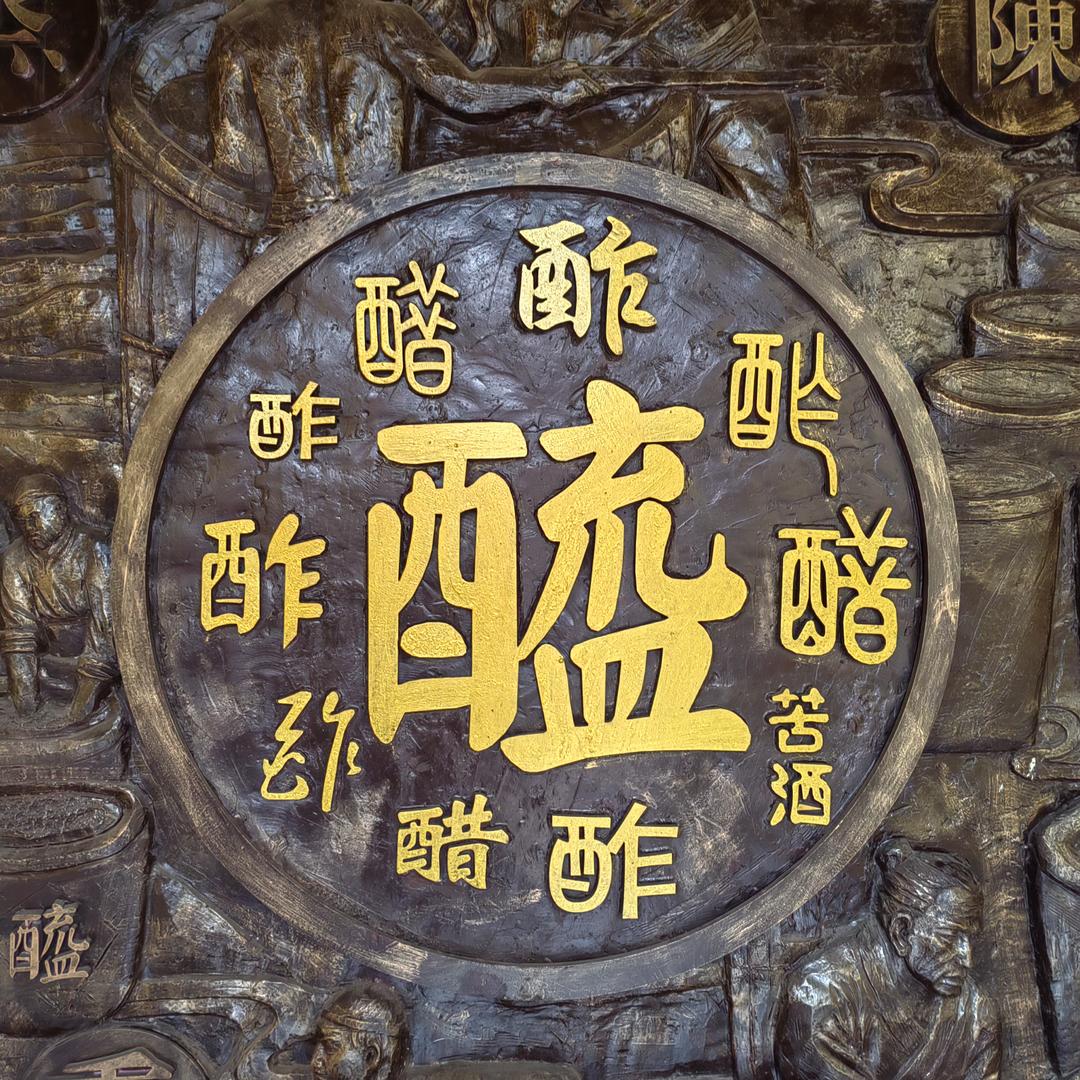 陳
酢
醋
酢
酢
醯
酢
醋
苦酒
酢
醋
酢
醯